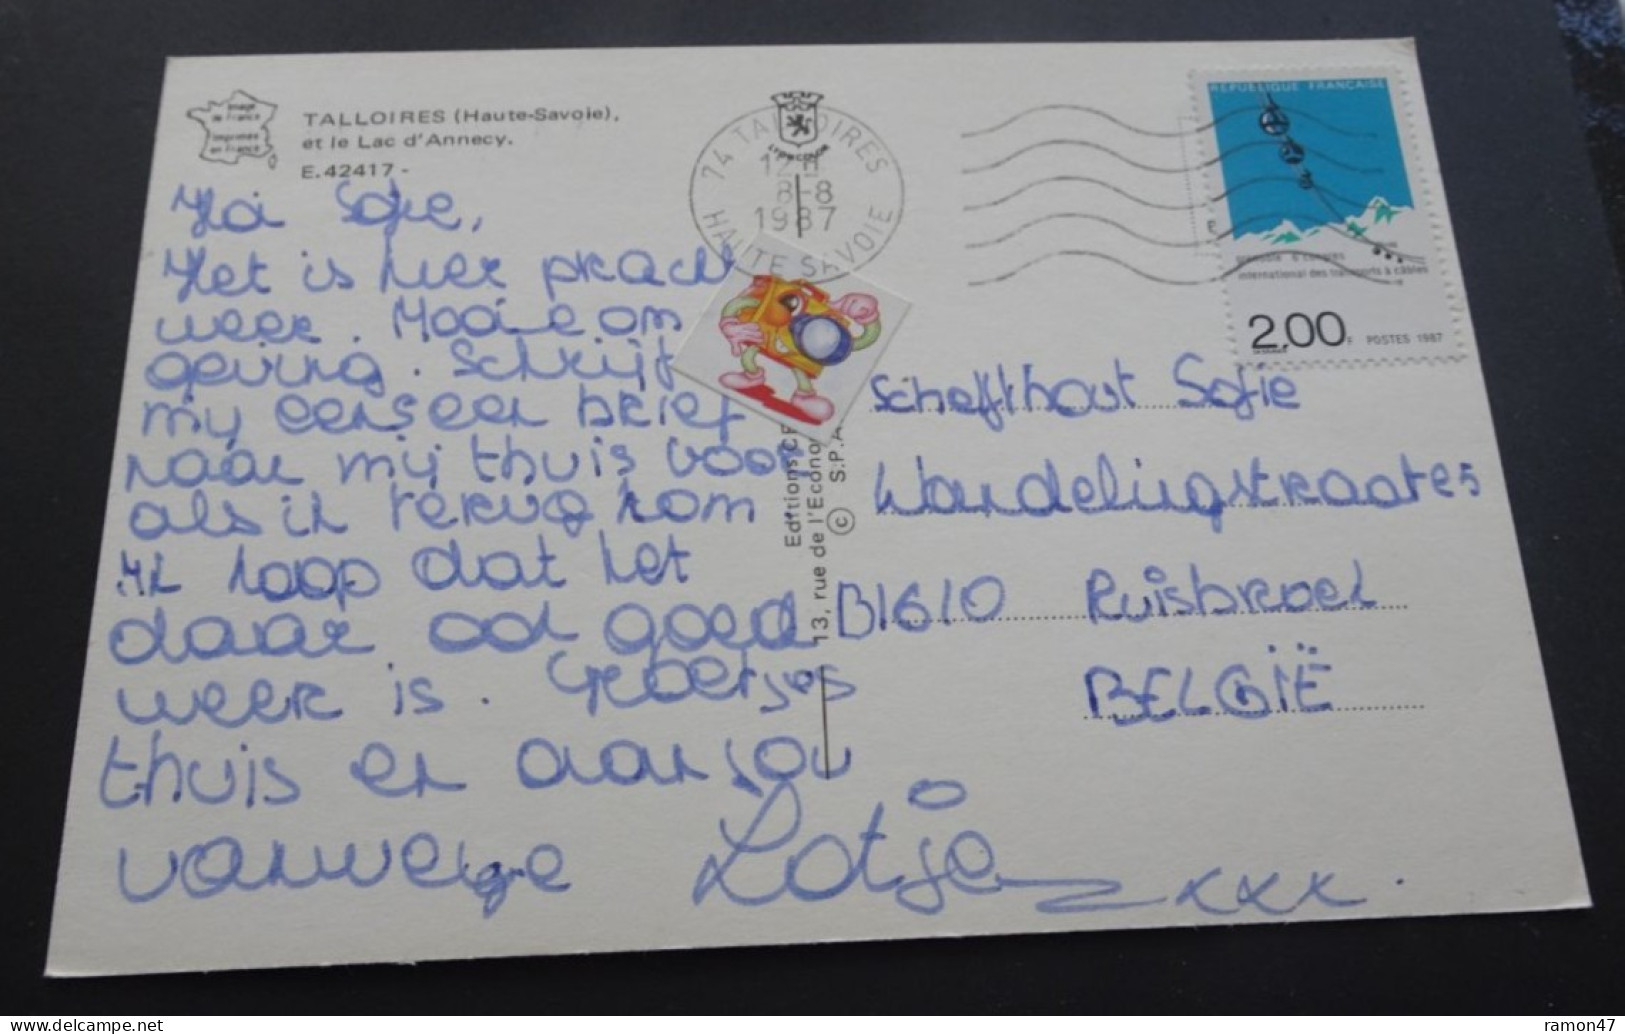 Image
de France
Imprimée
en France
TALLOIRES (Haute-Savoie),
et le Lac d'Annecy.
E.42417 -
74 TALLOIRES
12 H
8-8
1987
HAUTE SAVOIE
LYONCOLOR
REPUBLIQUE FRANÇAISE
grenoble 6e congrès
international des transports à câbles
2.00 F POSTES 1987
Hoi Sofie,
Het is hier prach
weer. Mooie om
geving. Schrijf
my eens een brief
naar mij thuis voor
als ik terug kom
Ik hoop dat het
daar ook goed
weer is. Groetjes
thuis en aan jou
vanwege Lotje xxx.
Editions CE
13, rue de l'Econo
© S.P.A
Schefthout Sofie
Wandelingstraat 25
B1610 Ruisbroek
BELGIË
ramon47